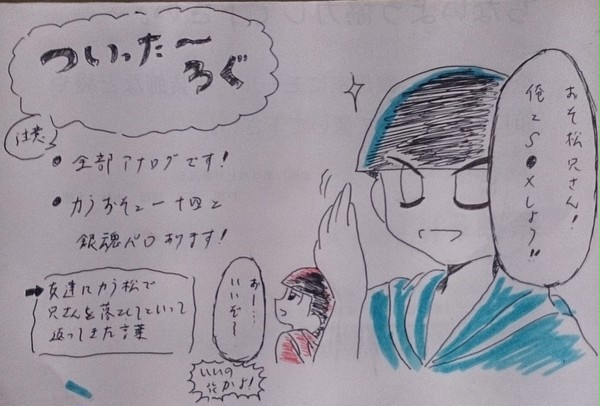 ついったー
ろぐ
注意
• 全部アナログです!
• カラおそと一十四と
銀魂パロあります!
➡友達にカラ松で
兄さんを落としてといって
返ってきた言葉
おそ松兄さん!
俺とS●Xしよう!!
おー…
いいぞ〜
いいの
かよ!